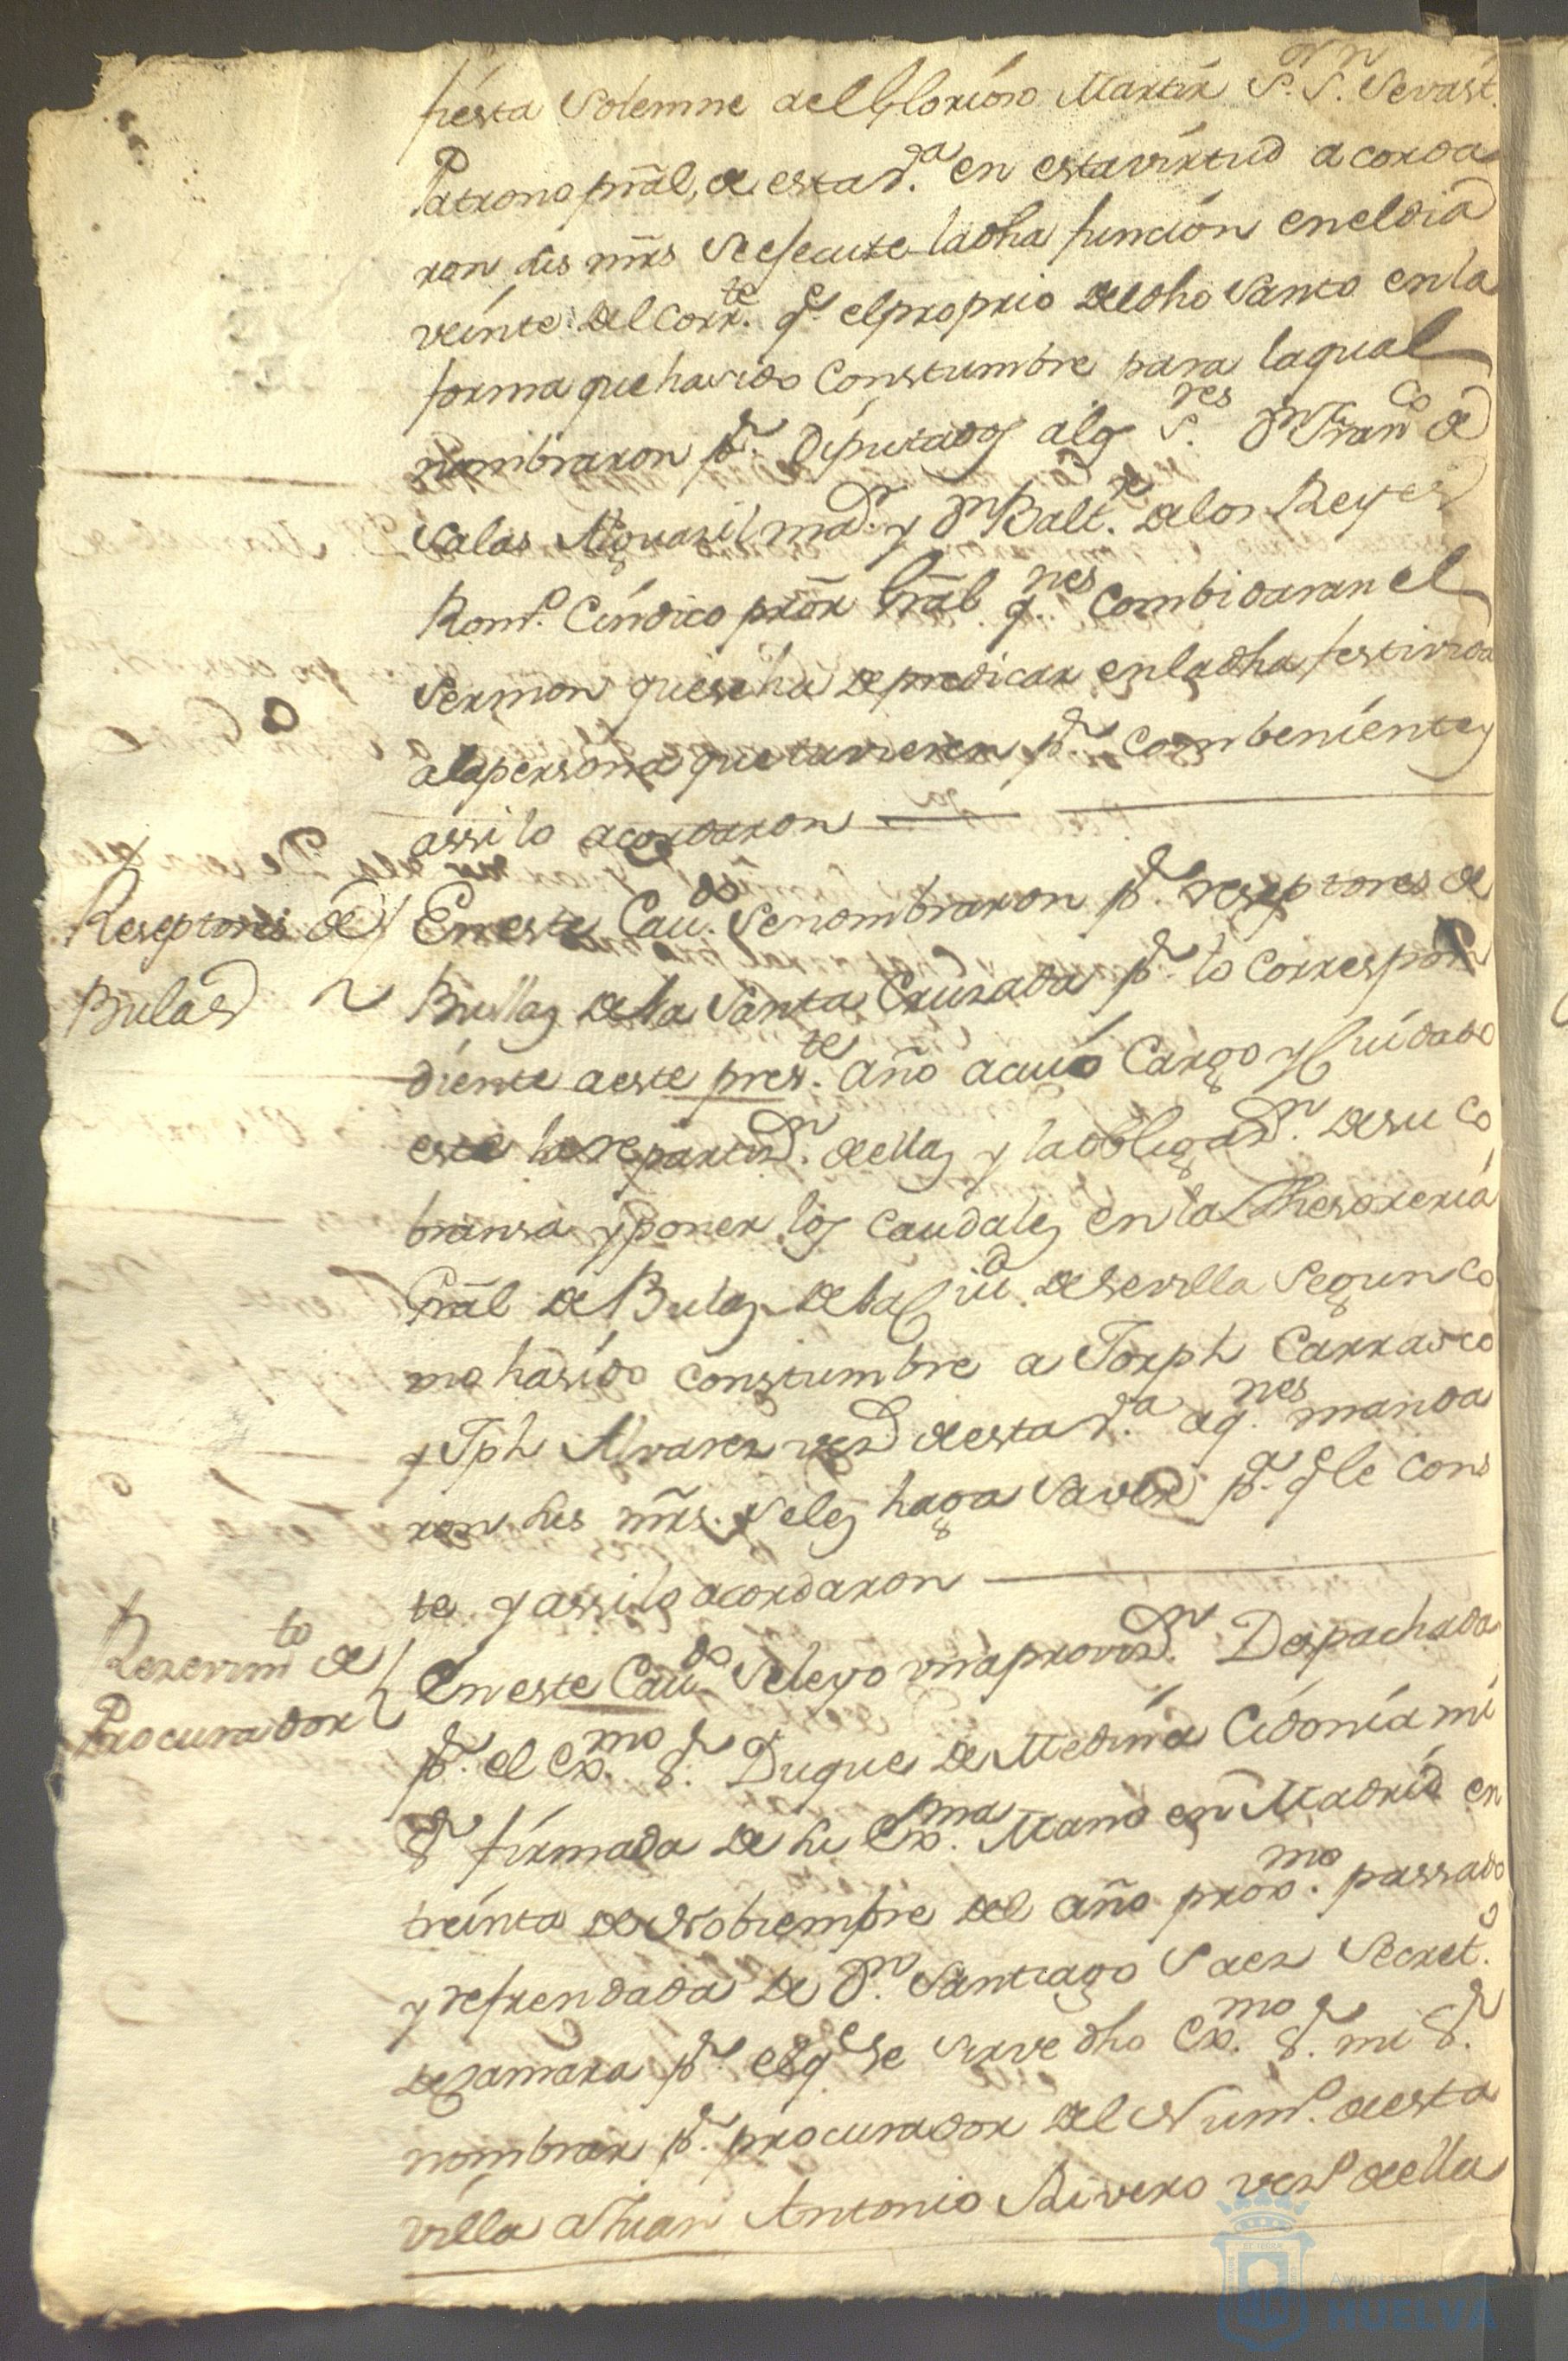 fiesta Solemne del Glorioso Martir S.r S.n Sevast.
Patrono prãl, de esta V.a en esta virtud acorda
ron sus mrs̃ se ejecute la dha función en el dia
veinte del corr.te q.e el proprio del dho Santo en la
forma que ha sido Constumbre para la qual
nombraron p.r Diputados a los S.res D.n Fran.co de
Salas Alguazil ma.r y D.n Balt.r de los Reyes
Rom.o Cindico prõr Grãl q.nes Combidaran el
Sermon que se ha de predicar en la dha festivida
a la persona que tuvieren p.r combeniente y
assi lo acordaron
Reseptores de
Bulas
En este Cau.do Se nombraron p.r reseptores de
Bullas de la Santa Cruzada p.r lo correspon
diente a este pres.te año a cuio Cargo y Cuidado
este la repartiz.n de ellas y la obligaz.n de su co
bransa y poner los caudales en la Thesoreria
Grãl de Bulas de la Ciu.d de Sevilla Segun co
mo ha sido constumbre a Joseph Carrasco
y Jph Alvarez vez.s de esta V.a a q.nes manda
ron sus mrs̃. se les haga saver p.a q.e le cons
te y assi lo acordaron
Rezevim.to de
Procurador
En este Cau.do Se leyo una proviz.n Despachada
p.r el Ex.mo S.r Duque de Medina Cidonia mi
S.r firmada de su Ex.ma Mano en Madrid en
treinta de Nobiembre del año prox.mo passado
y refrendada de D.n Santiago Saez Secret.o
de Camara p.r el q.e se sirve dho Ex.mo S.r mi S.r
nombrar p.r procurador del Num.o de esta
villa a Juan Antonio Rivero vez.o de ella
HUELVA